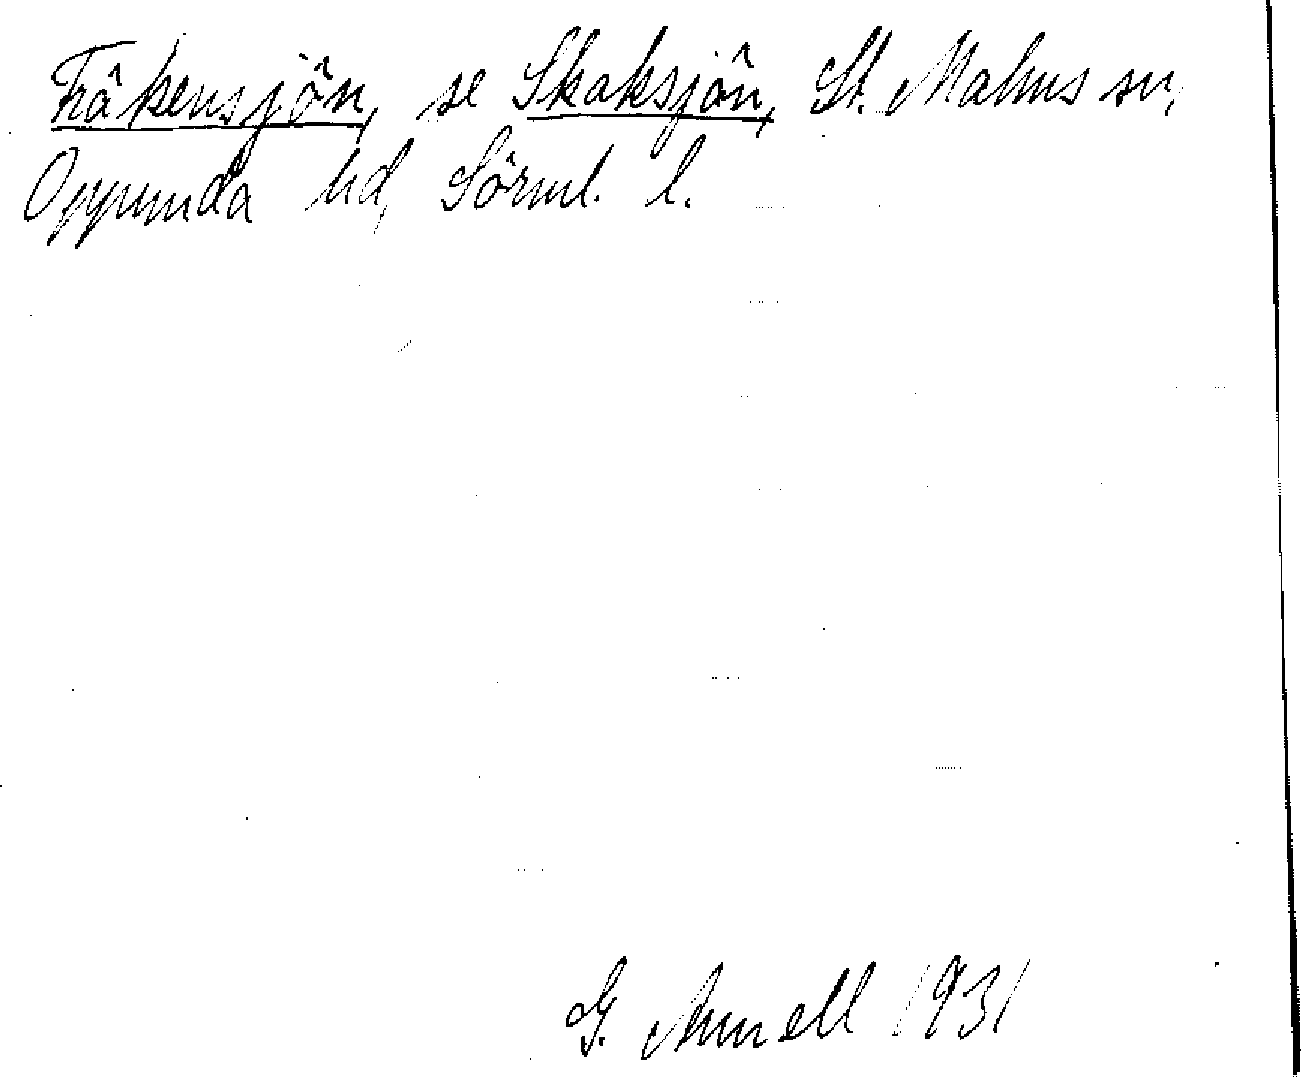 Fräkensjön, se Skaksjön, St. Malms sn,
Oppunda hd, Sörml. l.
G. Annell 1931